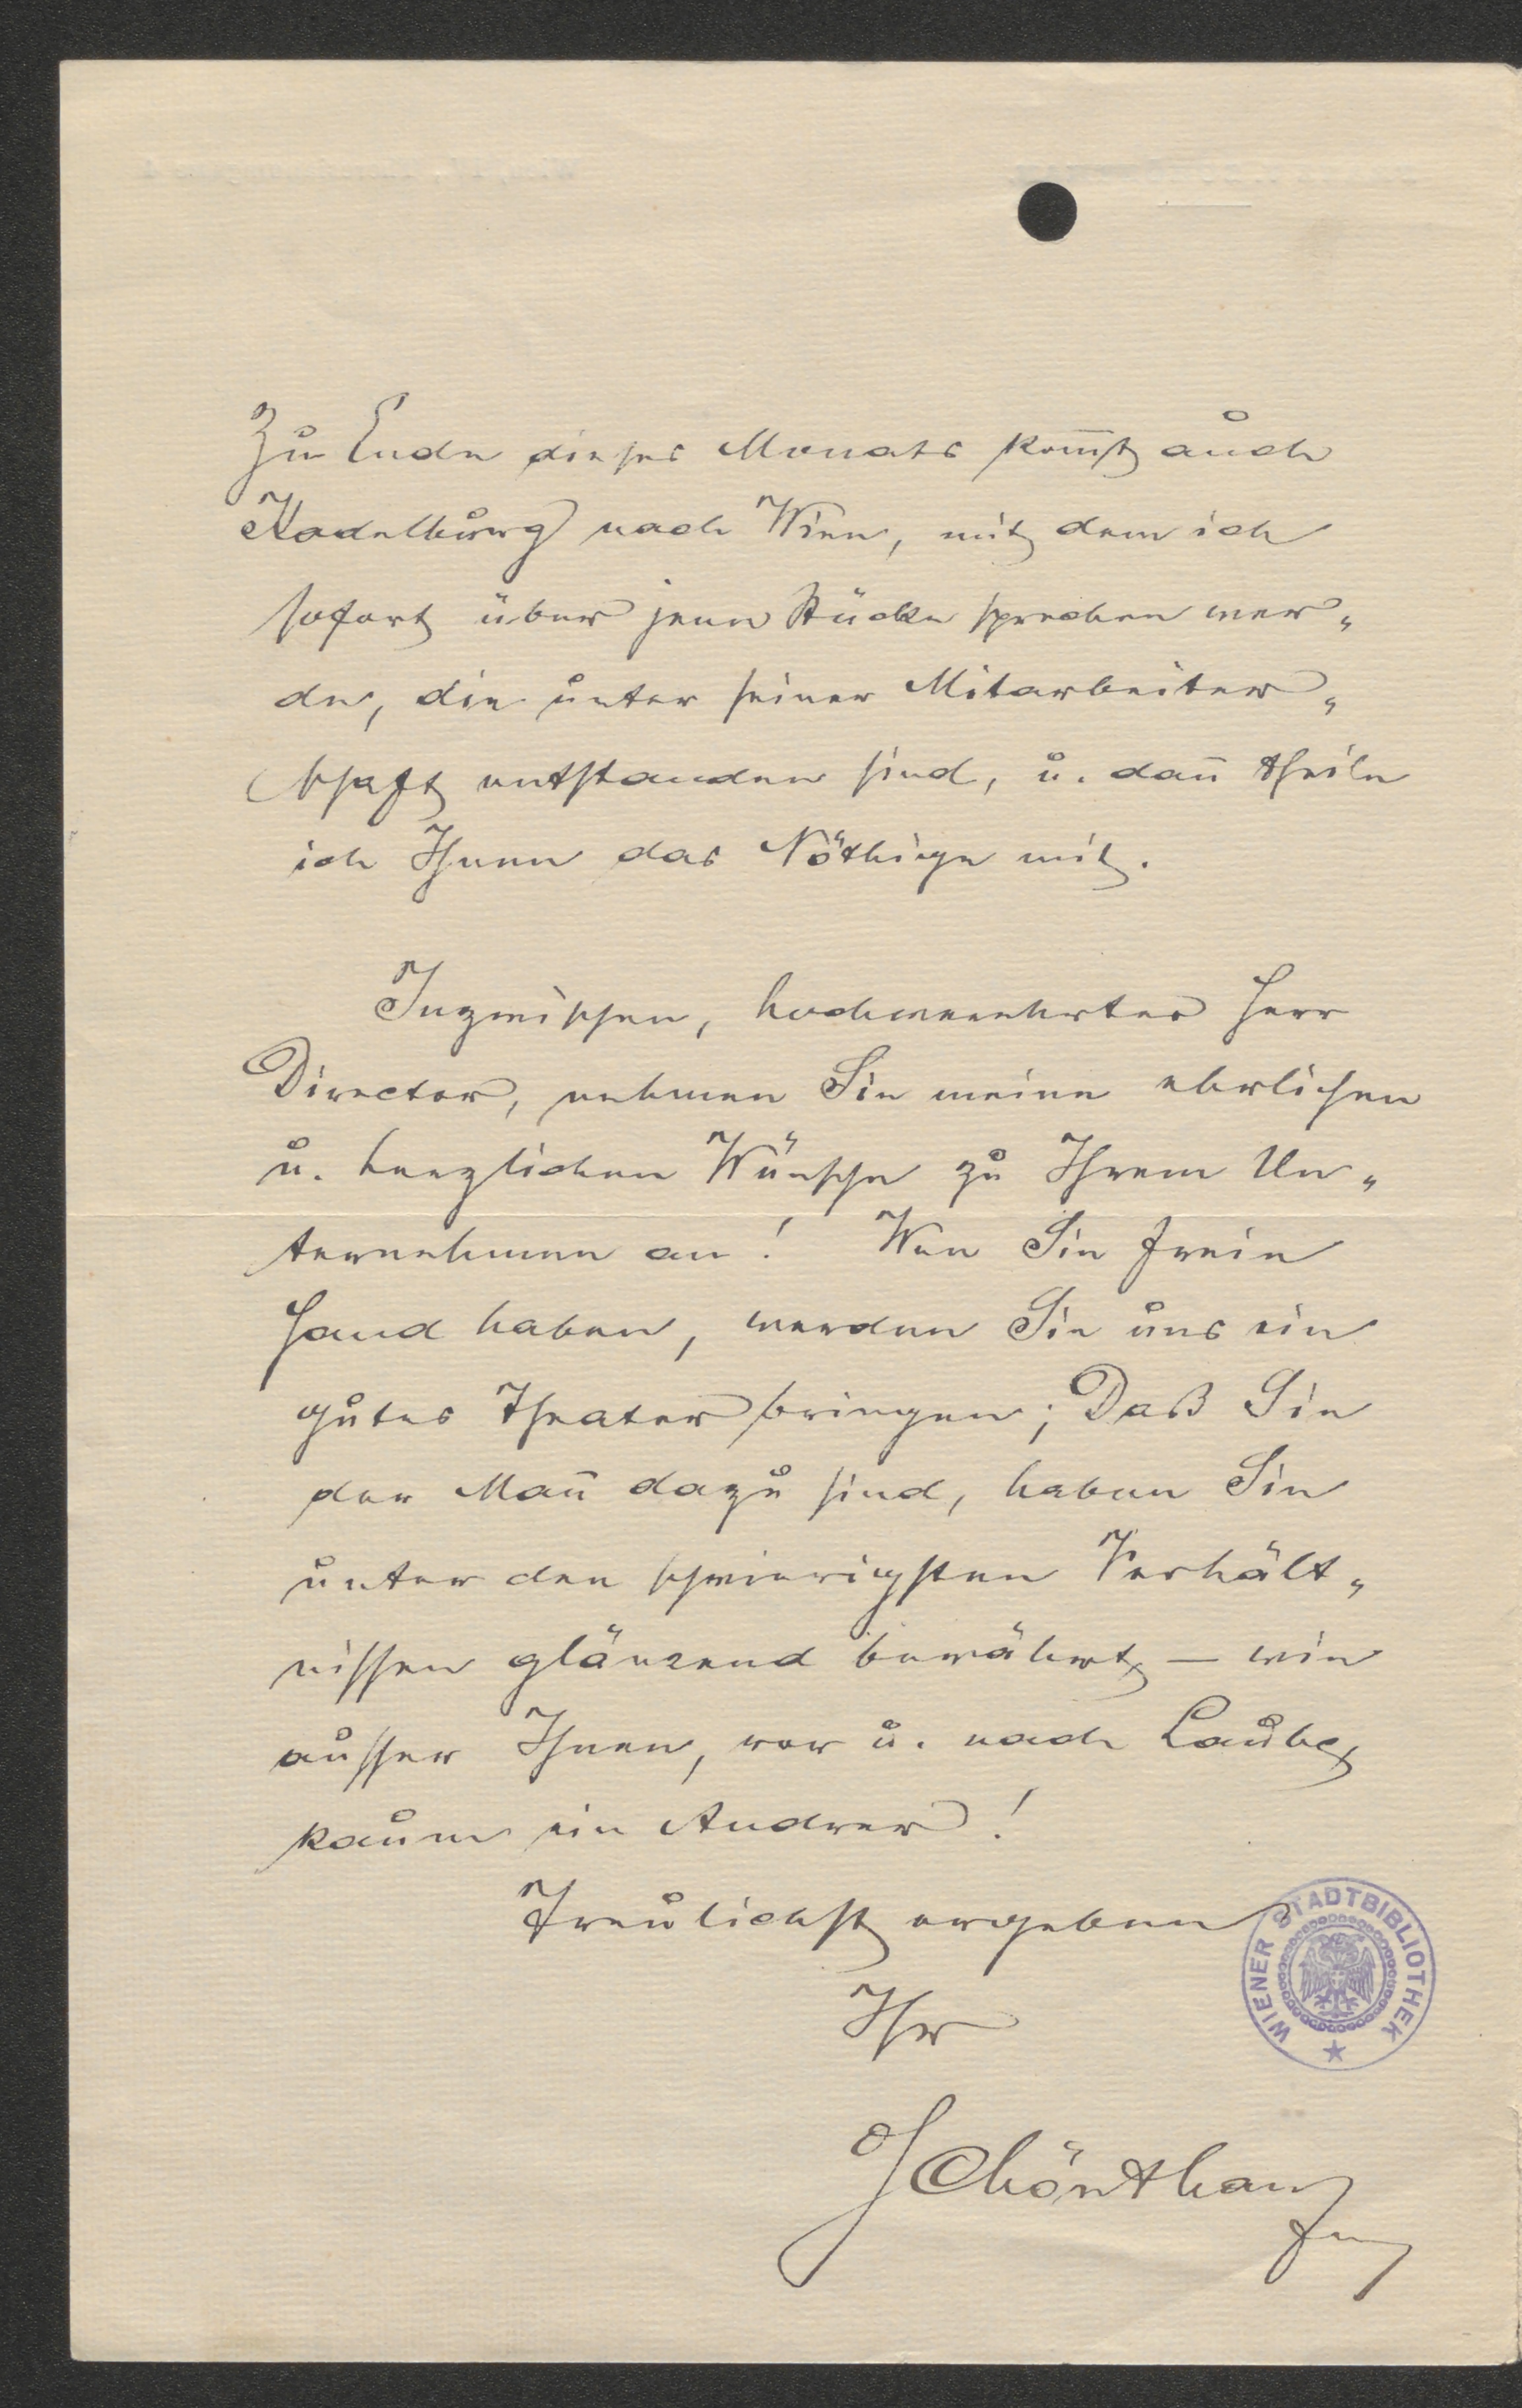 Zu Ende dieses Monats kom̅t auch
Kadelburg nach Wien, mit dem ich
sofort über jene Stücke sprechen wer„
de, die unter seiner Mitarbeiter„
schaft entstanden sind, u. dan̅ theile
ich Ihnen das Nöthige mit.
Inzwischen, hochverehrter Herr
Director, nehmen Sie meine ehrlichen
u. herzlichen Wünsche zu Ihrem Un„
ternehmen an! Wen Sie freie
Hand haben, werden Sie uns ein
gutes Theater bringen; Daß Sie
der Man̅ dazu sind, haben Sie
unter den schwierigsten Verhält„
nissen glänzend bewährt, – wie
ausser Ihnen, vor u. nach Laube,
kaum ein Andrer!
Treulichst ergeben
Ihr
Schönthan
WIENER STADTBIBLIOTHEK